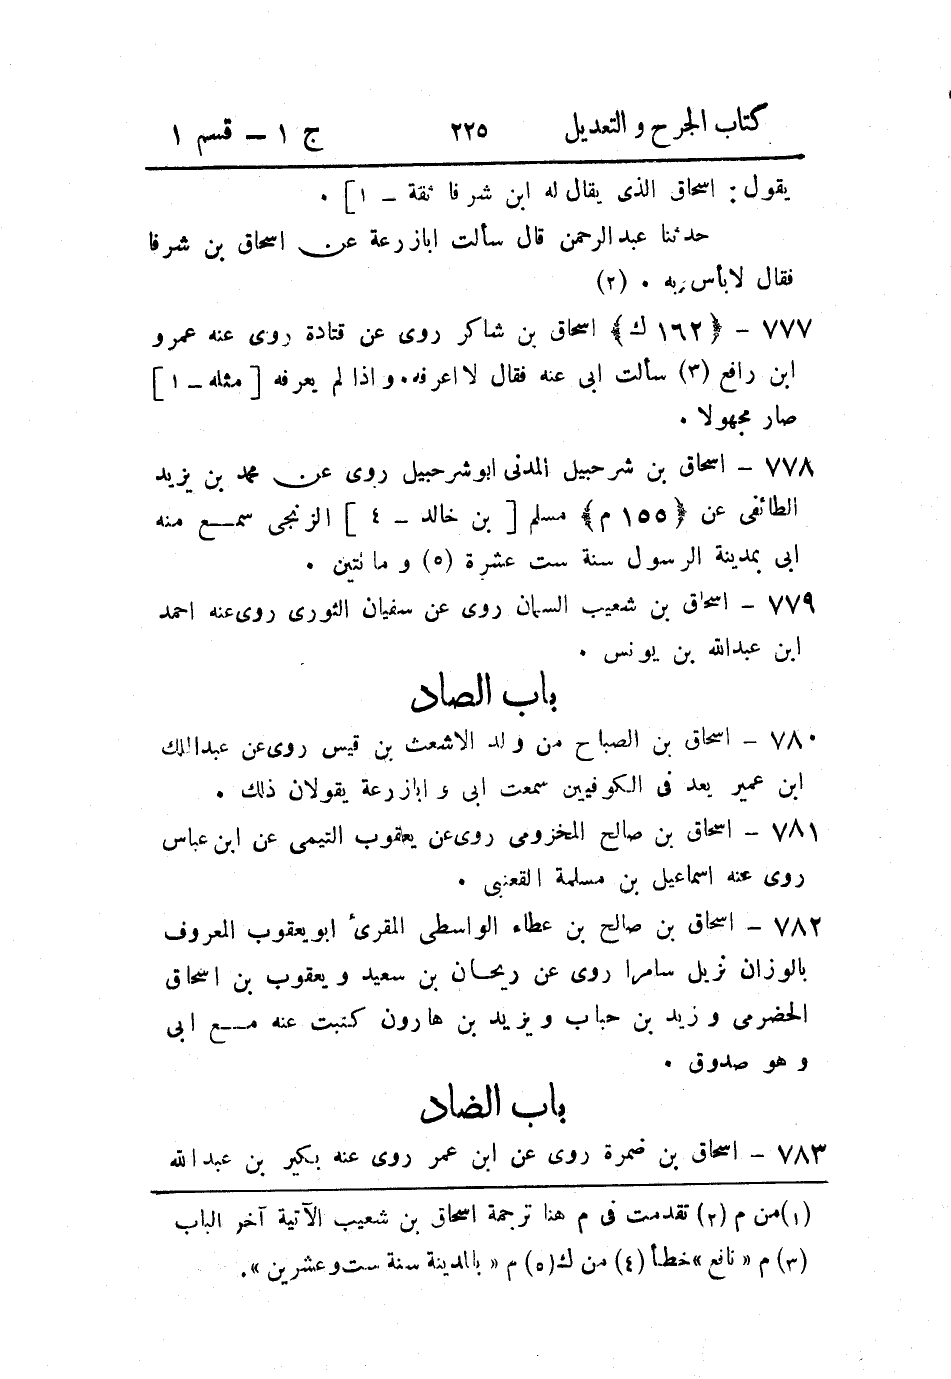 كتاب الجرح و التعديل ٢٢٥ ج ١ – قسم ١
يقول : اسحاق الذى يقال له ابن شرفا ثقة – ١ ] ٠
حدثنا عبد الرحمن قال سألت ابازرعة عن اسحاق بن شرفا
فقال لابأس به ٠ (٢)
٧٧٧ – ﴿١٦٢ ك﴾ اسحاق بن شاكر روى عن قتادة روى عنه عمرو
ابن رافع (٣) سألت ابى عنه فقال لااعرفه٠ و اذا لم يعرفه [ مثله – ١ ]
صار مجهولا ٠
٧٧٨ – اسحاق بن شرحبيل المدنى ابوشرحبيل روى عن محمد بن يزيد
الطائفى عن ﴿١٥٥ م﴾ مسلم [ بن خالد – ٤ ] الزنجى سمع منه
ابى بمدينة الرسول سنة ست عشرة (٥) و مائتين ٠
٧٧٩ – اسحاق بن شعيب السمان روى عن سفيان الثورى روى عنه احمد
ابن عبدالله بن يونس ٠
باب الصاد
٧٨٠ – اسحاق بن الصباح من ولد الاشعث بن قيس روى عن عبدالملك
ابن عمير يعد فى الكوفيين سمعت ابى و ابازرعة يقولان ذلك ٠
٧٨١ – اسحاق بن صالح المخزومى روى عن يعقوب التيمى عن ابن عباس
روى عنه اسماعيل بن مسلمة القعنبى ٠
٧٨٢ – اسحاق بن صالح بن عطاء الواسطى المقرئ ابويعقوب المعروف
بالوزان نزيل سامرا روى عن ريحان بن سعيد و يعقوب بن اسحاق
الحضرمى و زيد بن حباب و يزيد بن هارون كتبت عنه مع ابى
و هو صدوق ٠
باب الضاد
٧٨٣ – اسحاق بن ضمرة روى عن ابن عمر روى عنه بكير بن عبدالله
(١) من م (٢) تقدمت فى م هنا ترجمة اسحاق بن شعيب الآتية آخر الباب
(٣) م « نافع » خطأ (٤) من ك (٥) م « بالمدينة سنة ست و عشرين ».